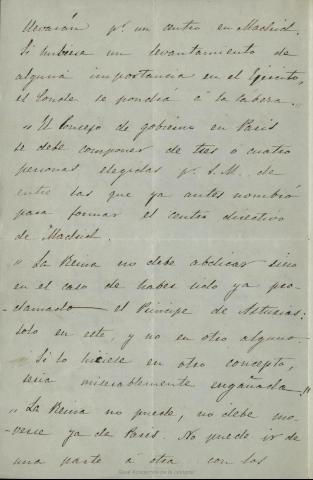 llevarán pr. un centro en Madrid.
Si hubiera un levantamiento de
alguna importancia en el Ejército,
el Conde se pondrá á la cabeza.,,
,, El Concejo de gobierno en Paris
se debe componer de tres ó cuatro
personas elegidas pr. S.M. de
entre las que ya antes nombró
para formar el centro directivo
de Madrid.
,, La Reina no debe abdicar sino
en el caso de haber sido ya pro-
-clamado el Principe de Asturias:
solo en este, y no en otro alguno.
Si lo hiciese en otro concepto,
seria miserablemente engañada.,,
,, La Reina no puede, no debe mo-
-verse ya de Paris. No puede ir de
una parte á otra con los